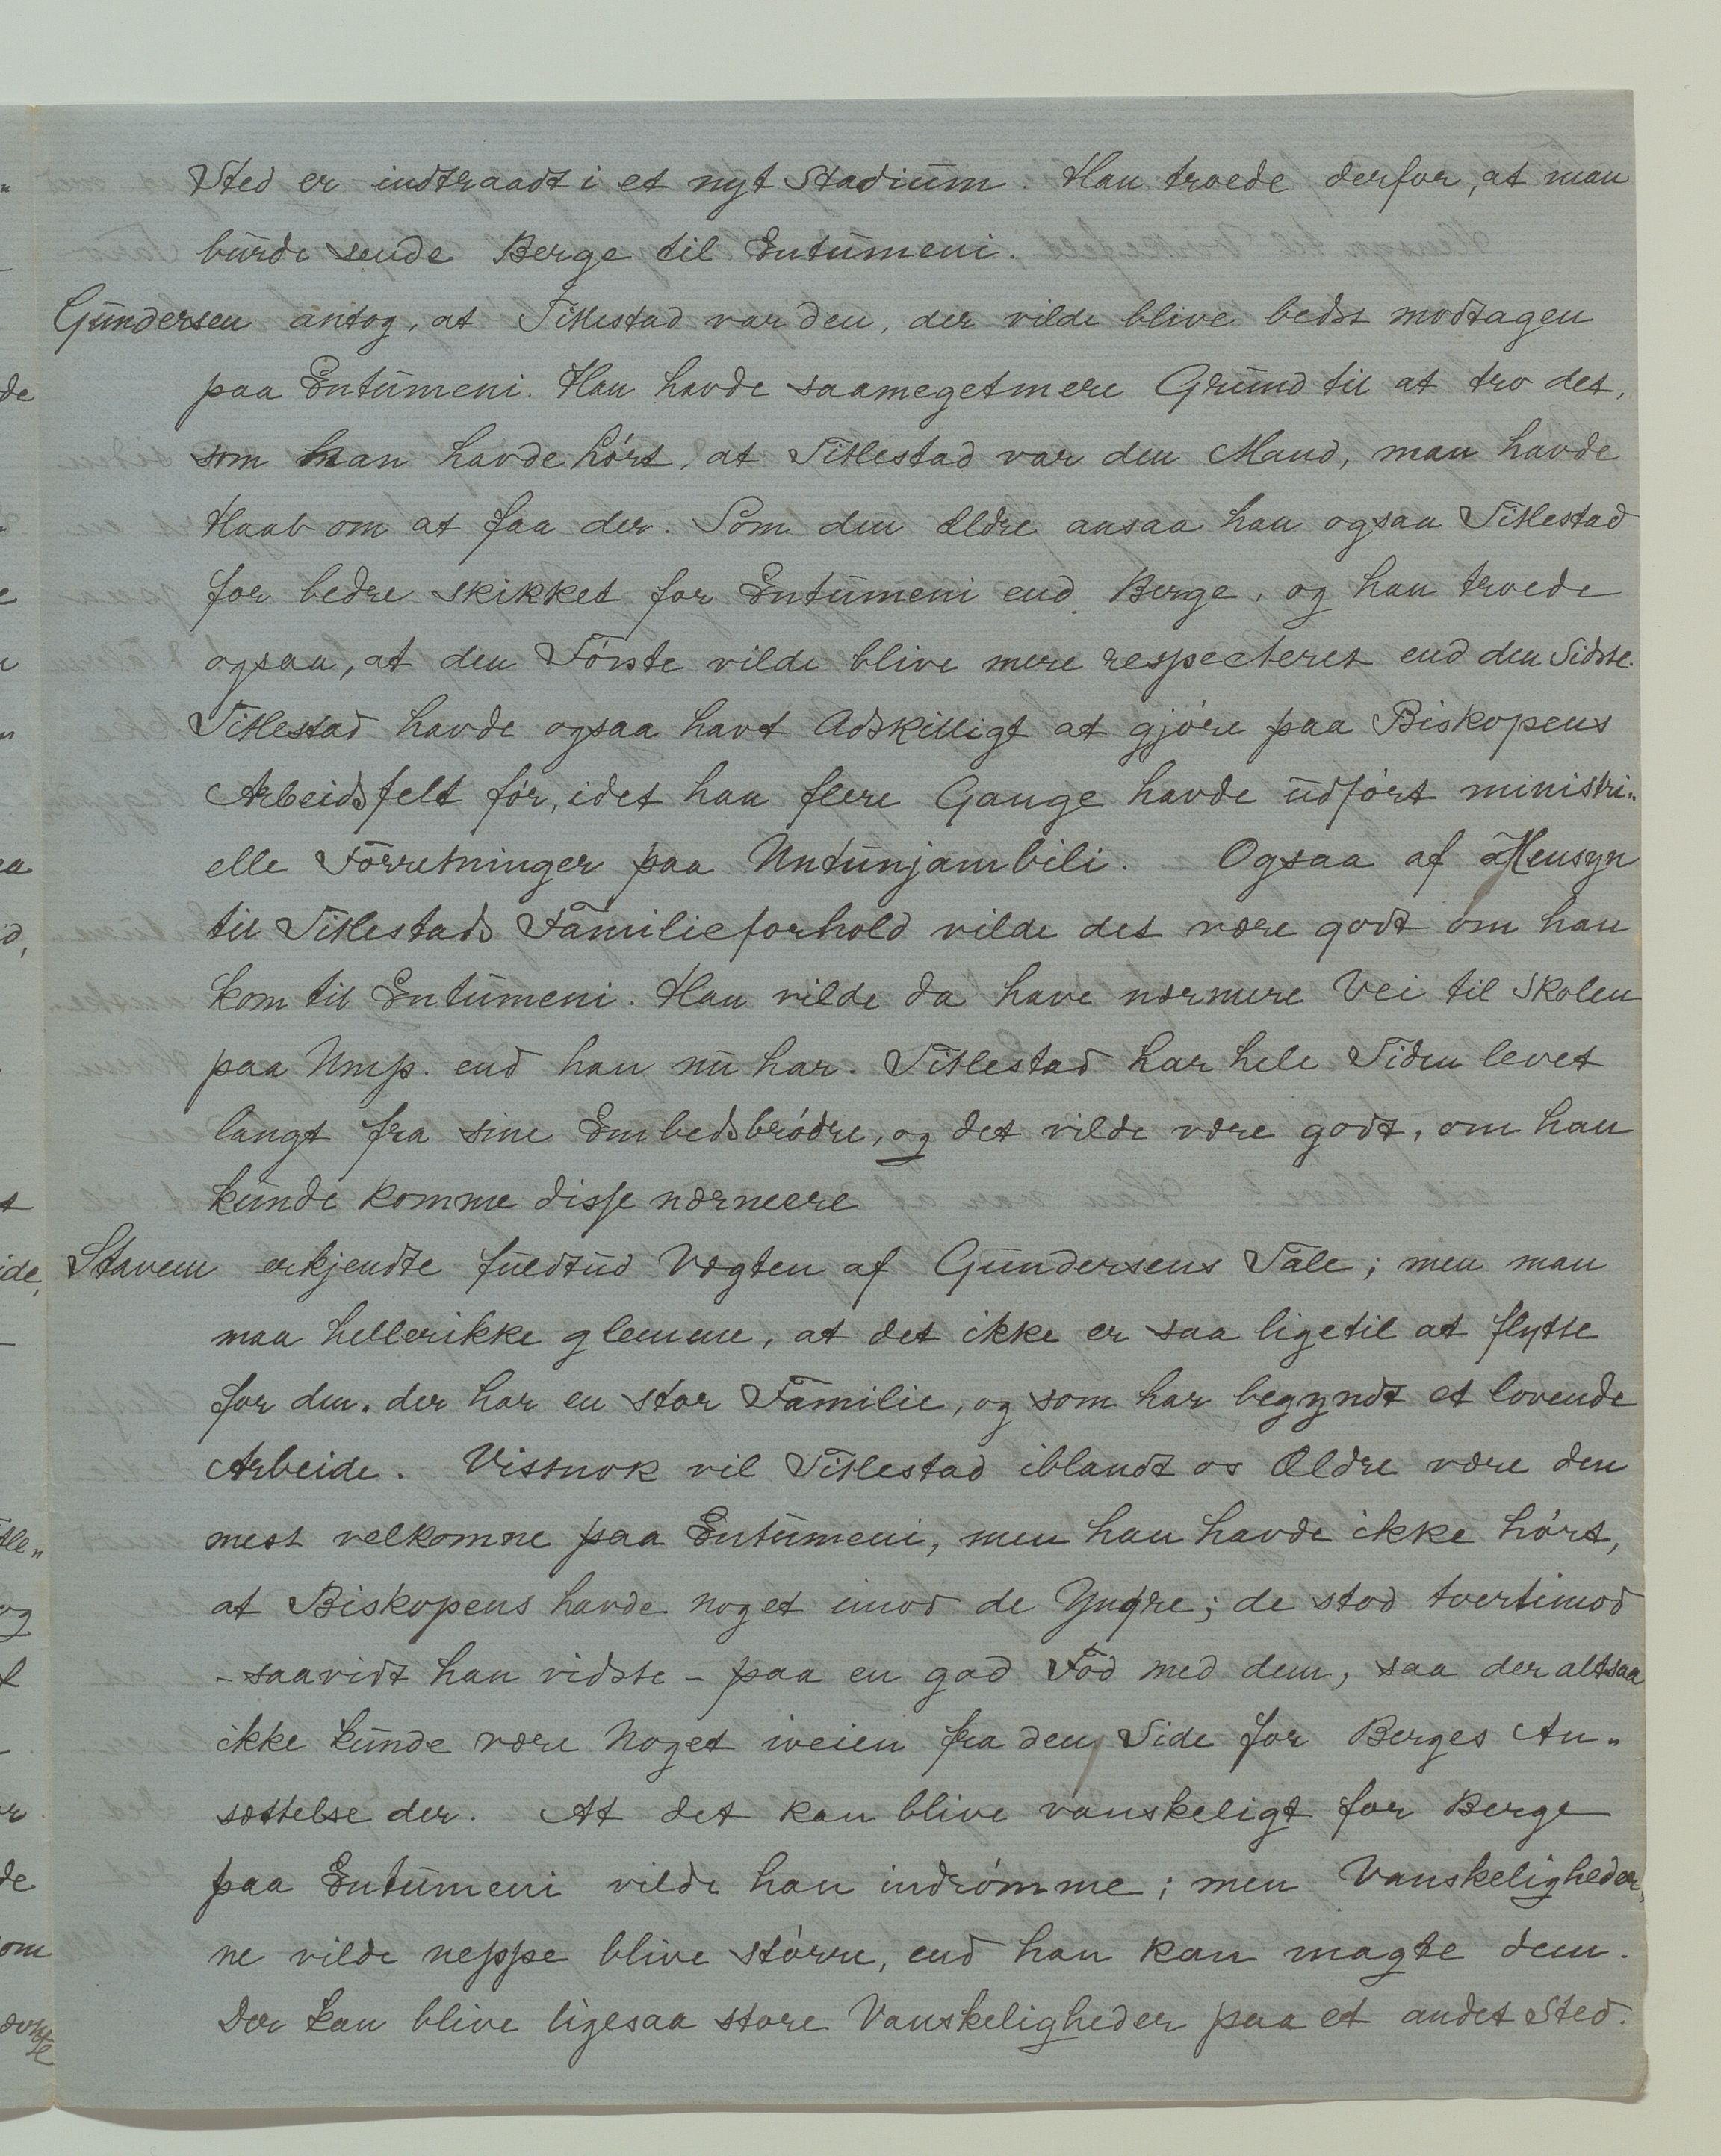 Sted er indtraadt i et nyt Stadium. Han troede derfor, at man
burde sende Berge til Entumeni.
Gundersen antog, at Titlestad var den, der vilde blive bedst modtagen
paa Entumeni. Han havde saameget mere Grund til at tro det,
som man havde hört, at Titlestad var den Mand, man havde
Haab om at faa der. Som den Ældre ansaa han ogsaa Titlestad
for bedre skikket for Entumeni end Berge, og han troede
ogsaa, at den Förste vilde blive mere respecteret end den Sidste.
Titlestad havde ogsaa havt Adskilligt at gjöre paa Biskopens
Arbeidsfelt för, idet han flere Gange havde udfört ministri„
elle Forretninger paa Untunjambili. Ogsaa af Hensyn
til Titlestads Familieforhold vilde det være godt om han
kom til Entumeni. Han vilde da have nærmere Vei til Skolen
paa Ump. end han nu har. Titlestad har hele Tiden levet
langt fra sine Embedsbrödre, og det vilde være godt, om han
kunde komme disse nærmere
Stavem erkjendte fuldtud Vægten af Gundersens Tale; men man
maa heller ikke glemme, at det ikke er saa ligetil at flytte
for den, der har en stor Familie, og som har begyndt et lovende
Arbeide. Vistnok vil Titlestad iblandt os Ældre være den
mest velkomne paa Entumeni, men han havde ikke hört,
at Biskopens havde noget imod de Yngre; de stod tvertimod
- saavidt han vidste - paa en god Fod med dem, saa der altsaa
ikke kunde være Noget iveien fra den Side for Berges An„
sættelse der. At det kan blive vanskeligt for Berge
paa Entumeni vilde han indrömme; men Vanskeligheder„
ne vilde neppe blive större, end han kan magte dem.
Der kan blive ligesaa store Vanskeligheder paa et andet Sted.